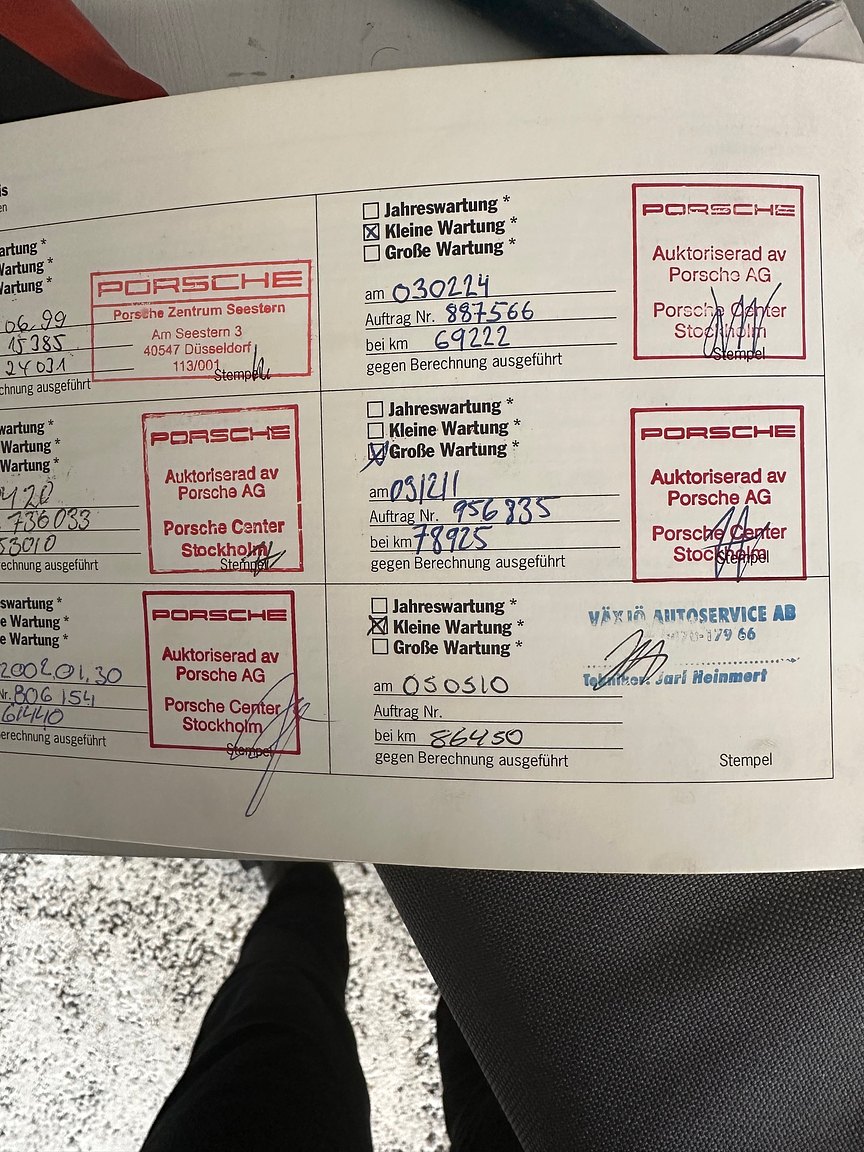 is
en
artung *
Wartung *
Wartung *
06.99
15385
24031
chnung ausgeführt
PORSCHE
Porsche Zentrum Seestern
Am Seestern 3
40547 Düsseldorf
113/001
Stempel
wartung *
Wartung *
Wartung *
0420
736033
53010
erechnung ausgeführt
PORSCHE
Auktoriserad av
Porsche AG
Porsche Center
Stockholm
Stempel
swartung *
e Wartung *
e Wartung *
2002.01.30
Nr. 806 154
61440
erechnung ausgeführt
PORSCHE
Auktoriserad av
Porsche AG
Porsche Center
Stockholm
Stempel
Jahreswartung *
Kleine Wartung *
Große Wartung *
am 030224
Auftrag Nr. 887566
bei km 69222
gegen Berechnung ausgeführt
PORSCHE
Auktoriserad av
Porsche AG
Porsche Center
Stockholm
Stempel
Jahreswartung *
Kleine Wartung *
Große Wartung *
am 031211
Auftrag Nr. 956835
bei km 78925
gegen Berechnung ausgeführt
PORSCHE
Auktoriserad av
Porsche AG
Porsche Center
Stockholm
Stempel
Jahreswartung *
Kleine Wartung *
Große Wartung *
am 050510
Auftrag Nr.
bei km 86450
gegen Berechnung ausgeführt
VÄXJÖ AUTOSERVICE AB
179 66
Tekniker: Jarl Heinmert
Stempel